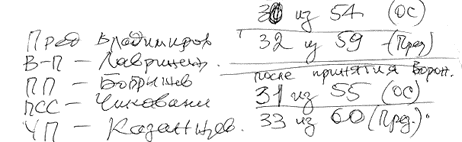 30 из 54 (ОС)
Пред Владимиров 32 из 59 (Пред)
В-П – Лавринен.
после принятия Ворон.
ПП – Бобрышев
ПСС – Чиковани 31 из 55 (ОС)
ЧП – Казанцев. 33 из 60 (Пред.)